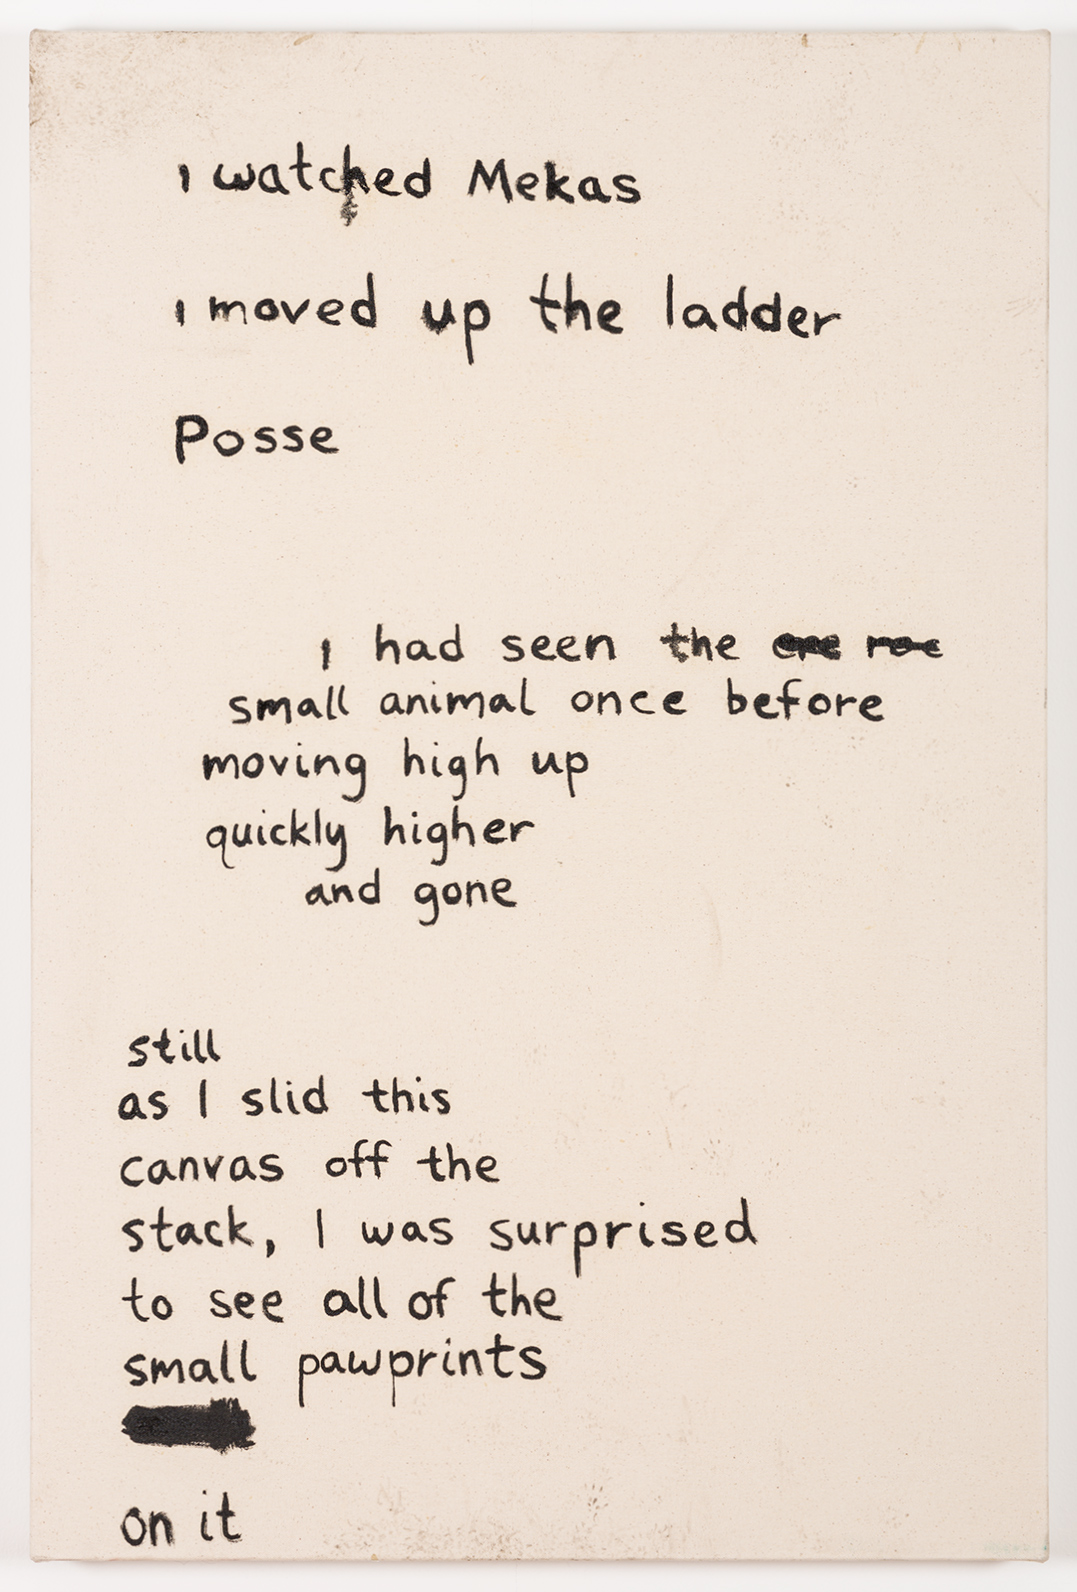 I watched Mekas
I moved up the ladder
Posse
I had seen the
small animal once before
moving high up
quickly higher
and gone
still
as I slid this
canvas off the
stack, I was surprised
to see all of the
small pawprints
on it